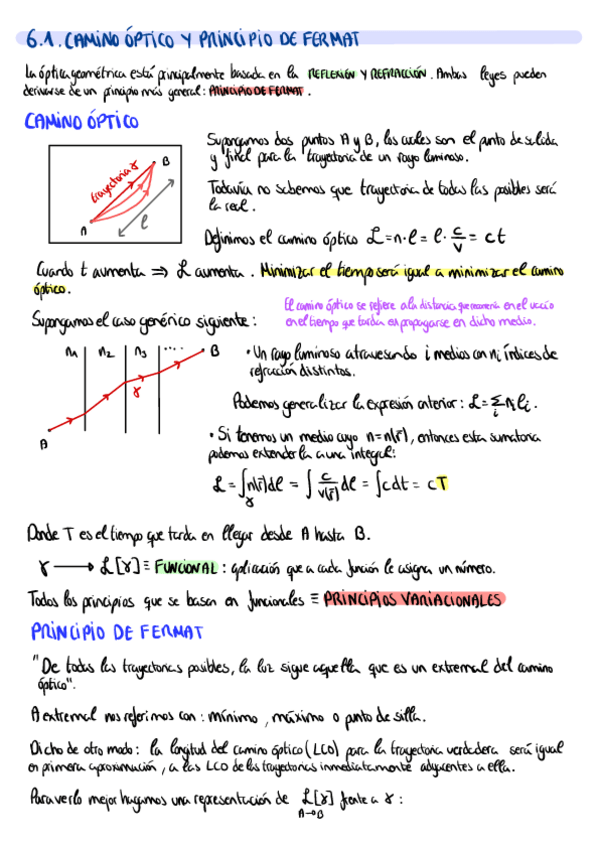 6.1. CAMINO ÓPTICO Y PRINCIPIO DE FERMAT
La óptica geométrica está principalmente basada en la REFLEXIÓN Y REFRACCIÓN. Ambas leyes pueden
derivarse de un principio más general: PRINCIPIO DE FERMAT.
CAMINO ÓPTICO
Supongamos dos puntos A y B, los cuales son el punto de salida
y final para la trayectoria de un rayo luminoso.
Todavía no sabemos que trayectoria de todas las posibles será
la real.
trayectoria γ
B
A
l
Definimos el camino óptico L = n·l = l·c/v = ct
Cuando t aumenta ⇒ L aumenta. Minimizar el tiempo será igual a minimizar el camino
óptico.
El camino óptico se refiere a la distancia que recorrería en el vacío
en el tiempo que tarda en propagarse en dicho medio.
Supongamos el caso genérico siguiente:
n₁ n₂ n₃ ... B
γ
A
• Un rayo luminoso atravesando i medios con nᵢ índices de
refracción distintos.
Podemos generalizar la expresión anterior: L = Σᵢ nᵢlᵢ.
• Si tenemos un medio cuyo n=n(r̄), entonces esta sumatoria
podemos extenderla a una integral:
L = ∫γ n(r̄)dl = ∫ c/v(r̄) dl = ∫cdt = cT
Donde T es el tiempo que tarda en llegar desde A hasta B.
γ ⟶ L[γ] ≡ FUNCIONAL: aplicación que a cada función le asigna un número.
Todos los principios que se basan en funcionales ≡ PRINCIPIOS VARIACIONALES
PRINCIPIO DE FERMAT
"De todas las trayectorias posibles, la luz sigue aquella que es un extremal del camino
óptico".
A extremal nos referimos con: mínimo, máximo o punto de silla.
Dicho de otro modo: la longitud del camino óptico (LCO) para la trayectoria verdadera será igual
en primera aproximación, a las LCO de las trayectorias inmediatamente adyacentes a ella.
Para verlo mejor hagamos una representación de L[γ] frente a γ:
A→B